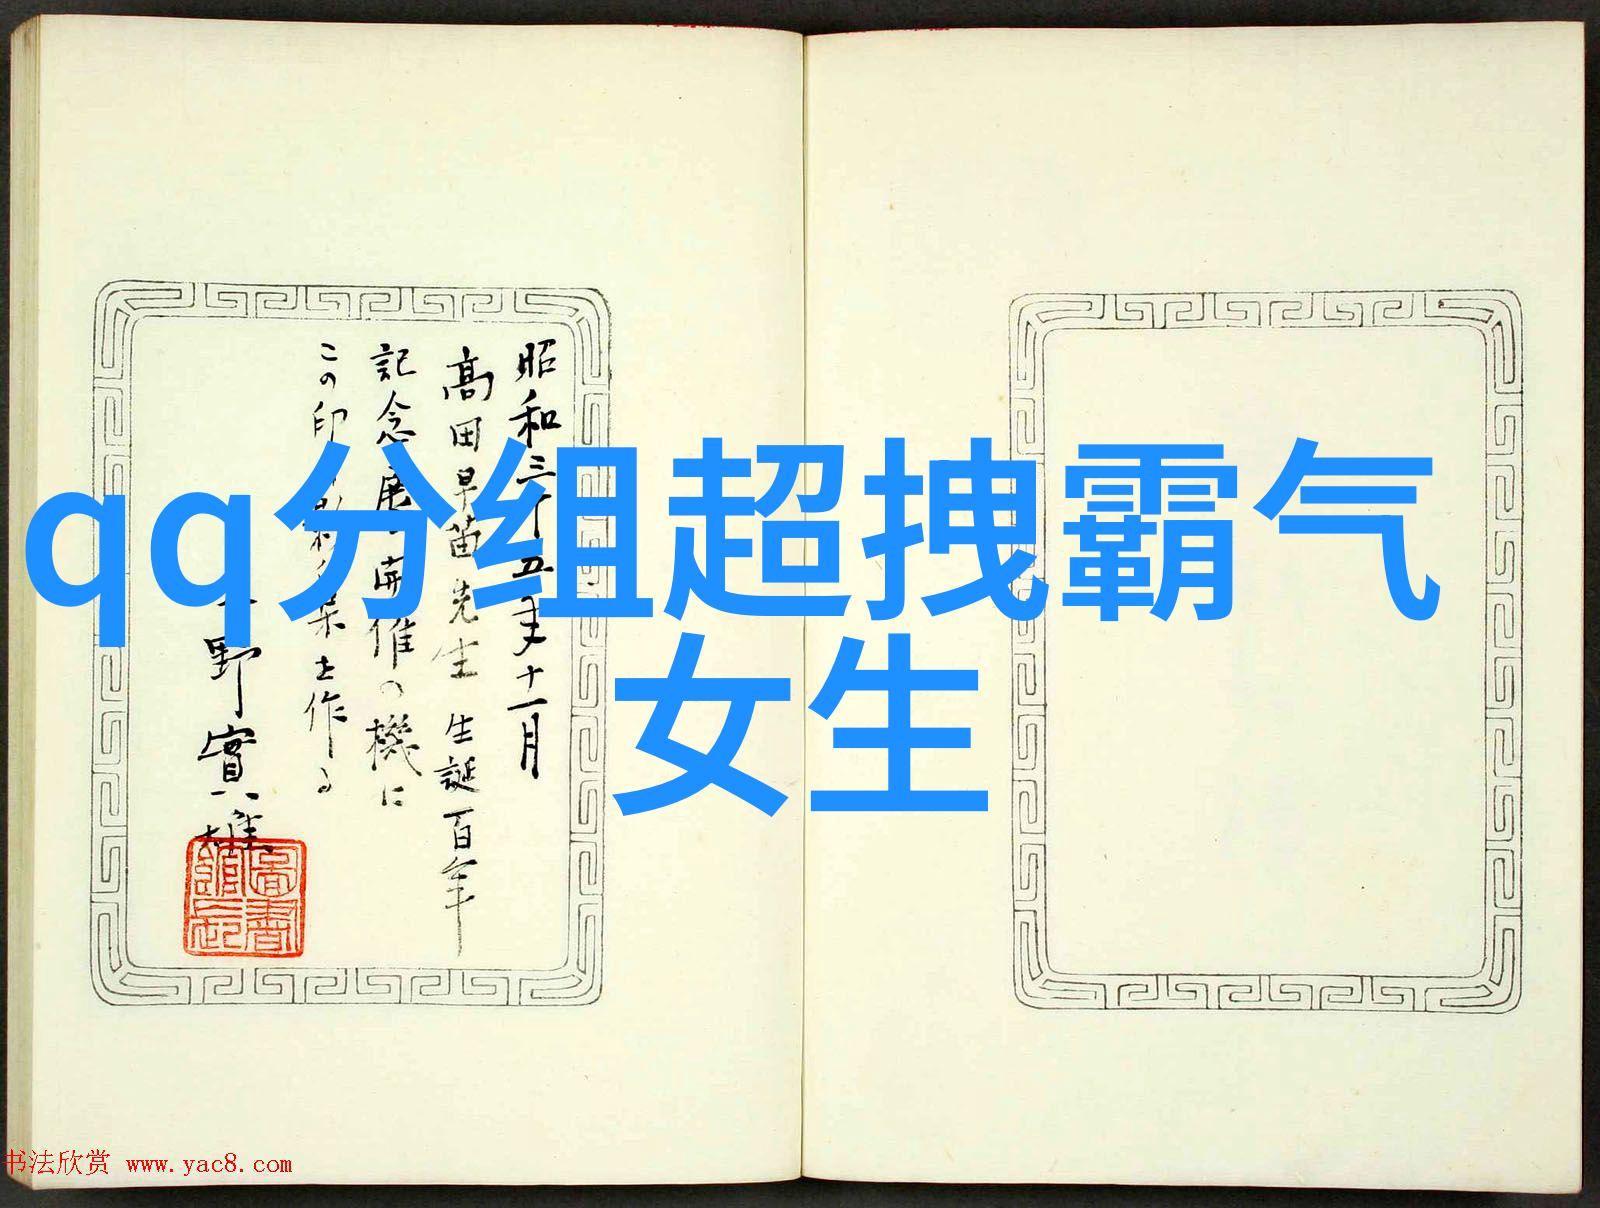 昭和三十五年十一月
高田早苗先生生誕百年
記念展開催の機に
この印影集土作る
野實雄
qq分组超拽霸气
女生
圖書
館長
书法欣赏 www.yac8.com